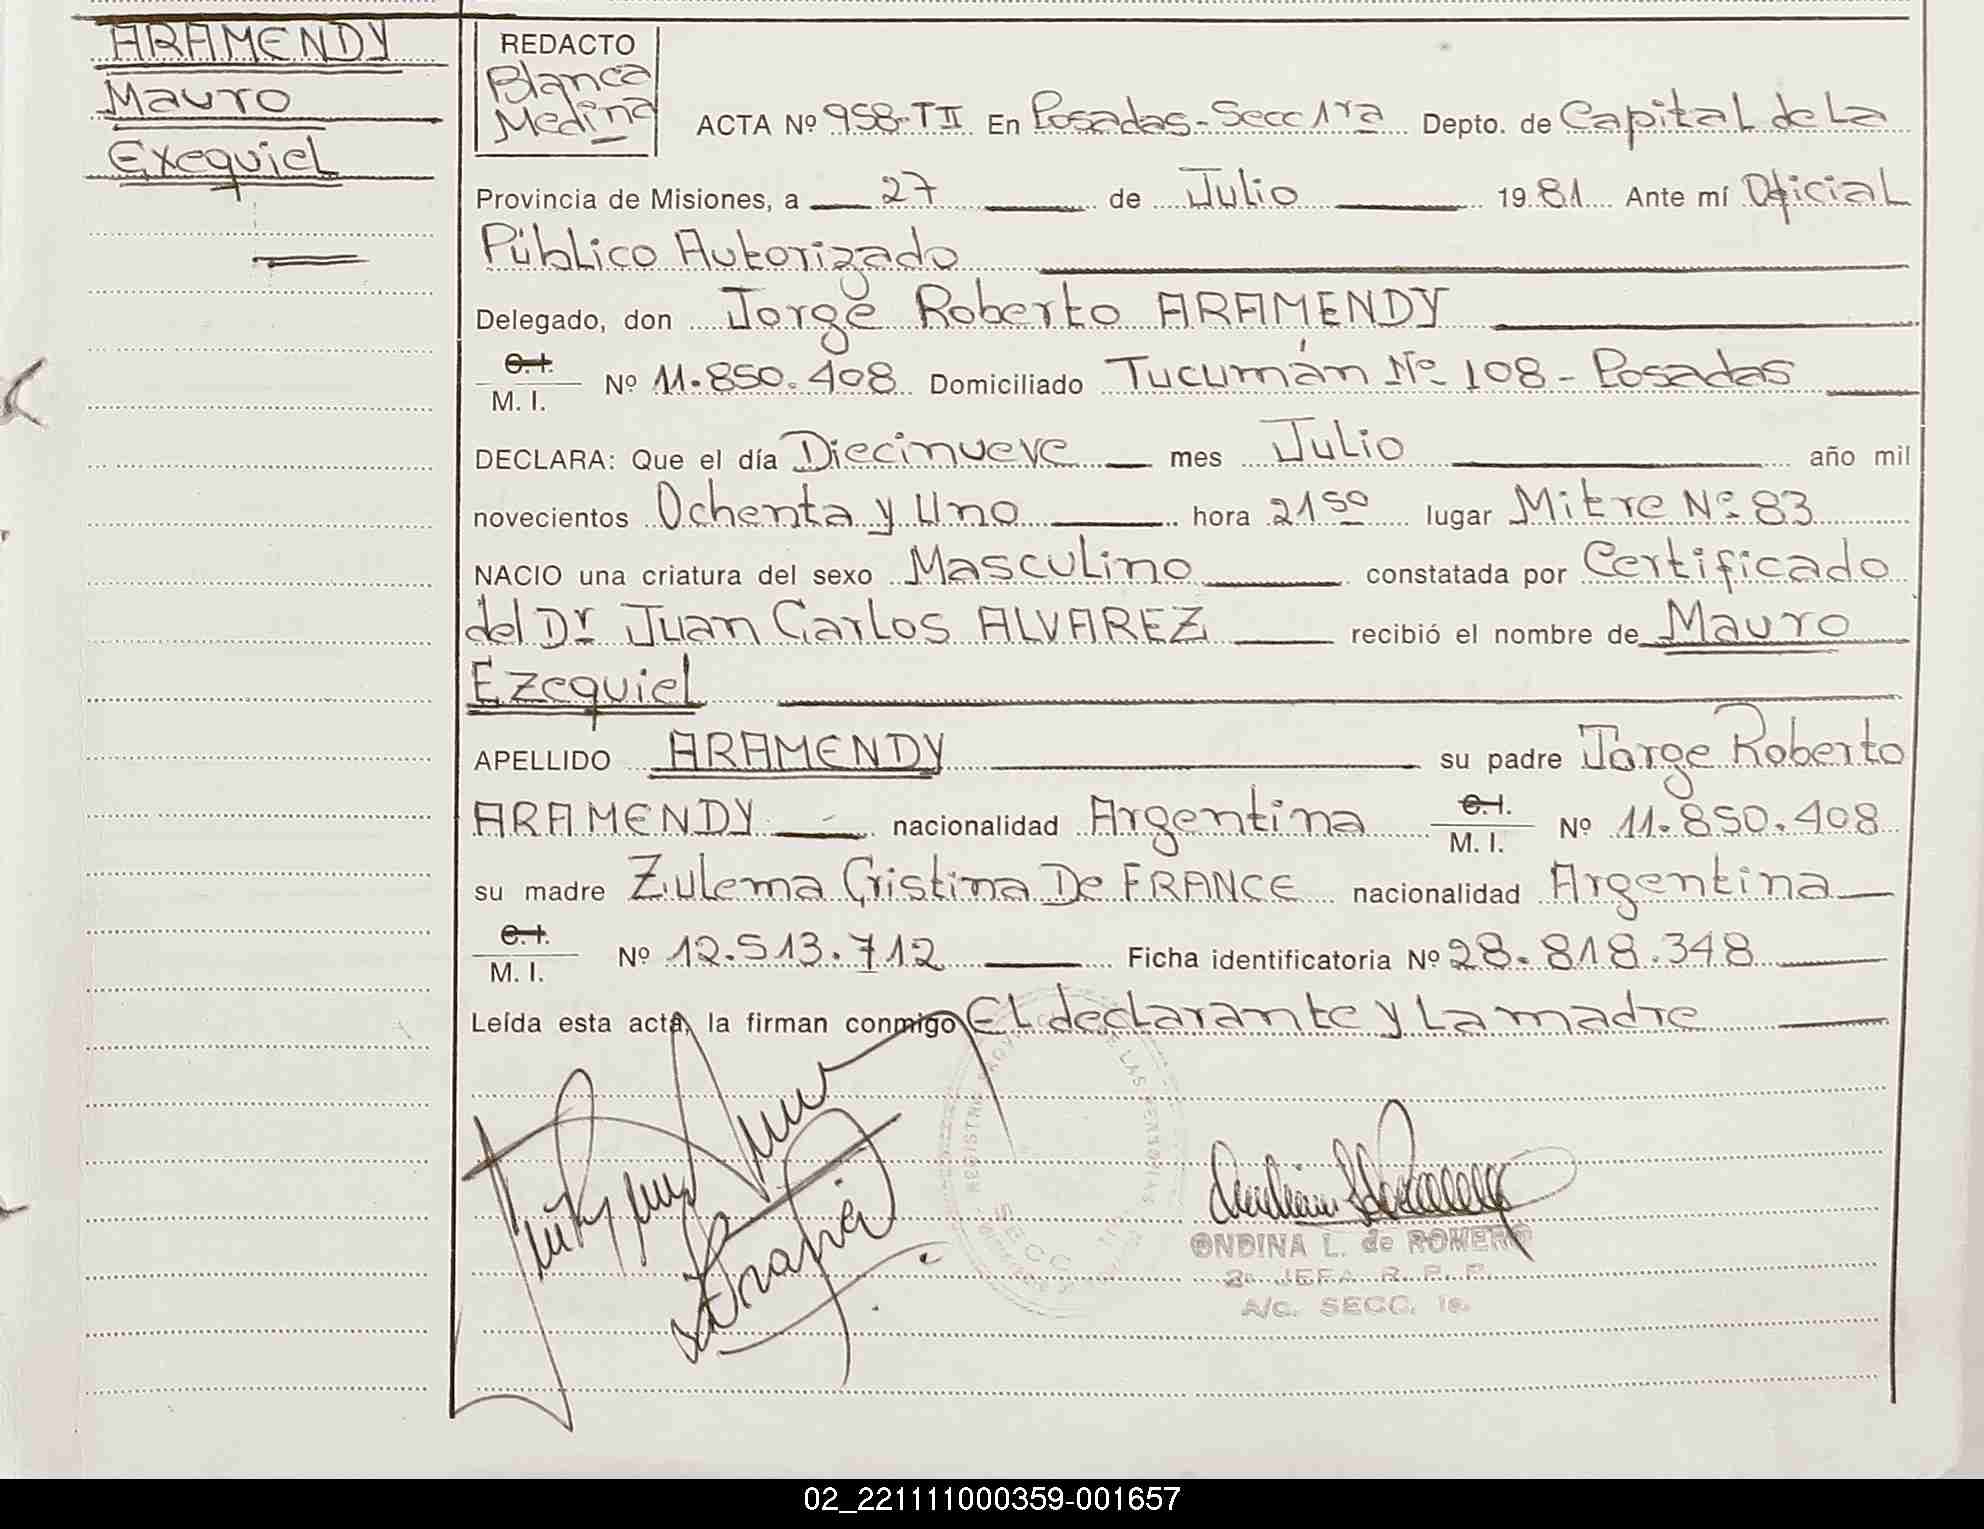 ARAMENDY
Mauro
Exequiel
REDACTO
Blanca
Medina
ACTA Nº 958-TII En Posadas-Secc 1ra Depto. de Capital de La
Provincia de Misiones, a 27 de Julio 1981 Ante mí Oficial
Público Autorizado
Delegado, don Jorge Roberto ARAMENDY
C.I.
M.I. Nº 11.850.408 Domiciliado Tucumán Nº 108 - Posadas
DECLARA: Que el día Diecinueve mes Julio año mil
novecientos Ochenta y Uno hora 21 50 lugar Mitre Nº 83
NACIO una criatura del sexo Masculino constatada por Certificado
del Dr Juan Carlos ALVAREZ recibió el nombre de Mauro
Ezequiel
APELLIDO ARAMENDY su padre Jorge Roberto
ARAMENDY nacionalidad Argentina C.I.
M.I. Nº 11.850.408
su madre Zulema Cristina De FRANCE nacionalidad Argentina
C.I.
M.I. Nº 12.513.712 Ficha identificatoria Nº 28.818.348
Leída esta acta, la firman conmigo El declarante y La madre
REGISTRO DE LAS PERSONAS
SECC.
ONDINA L. de ROMERO
2a JEFA R. P. P.
A/c. SECC. 1a.
02_221111000359-001657